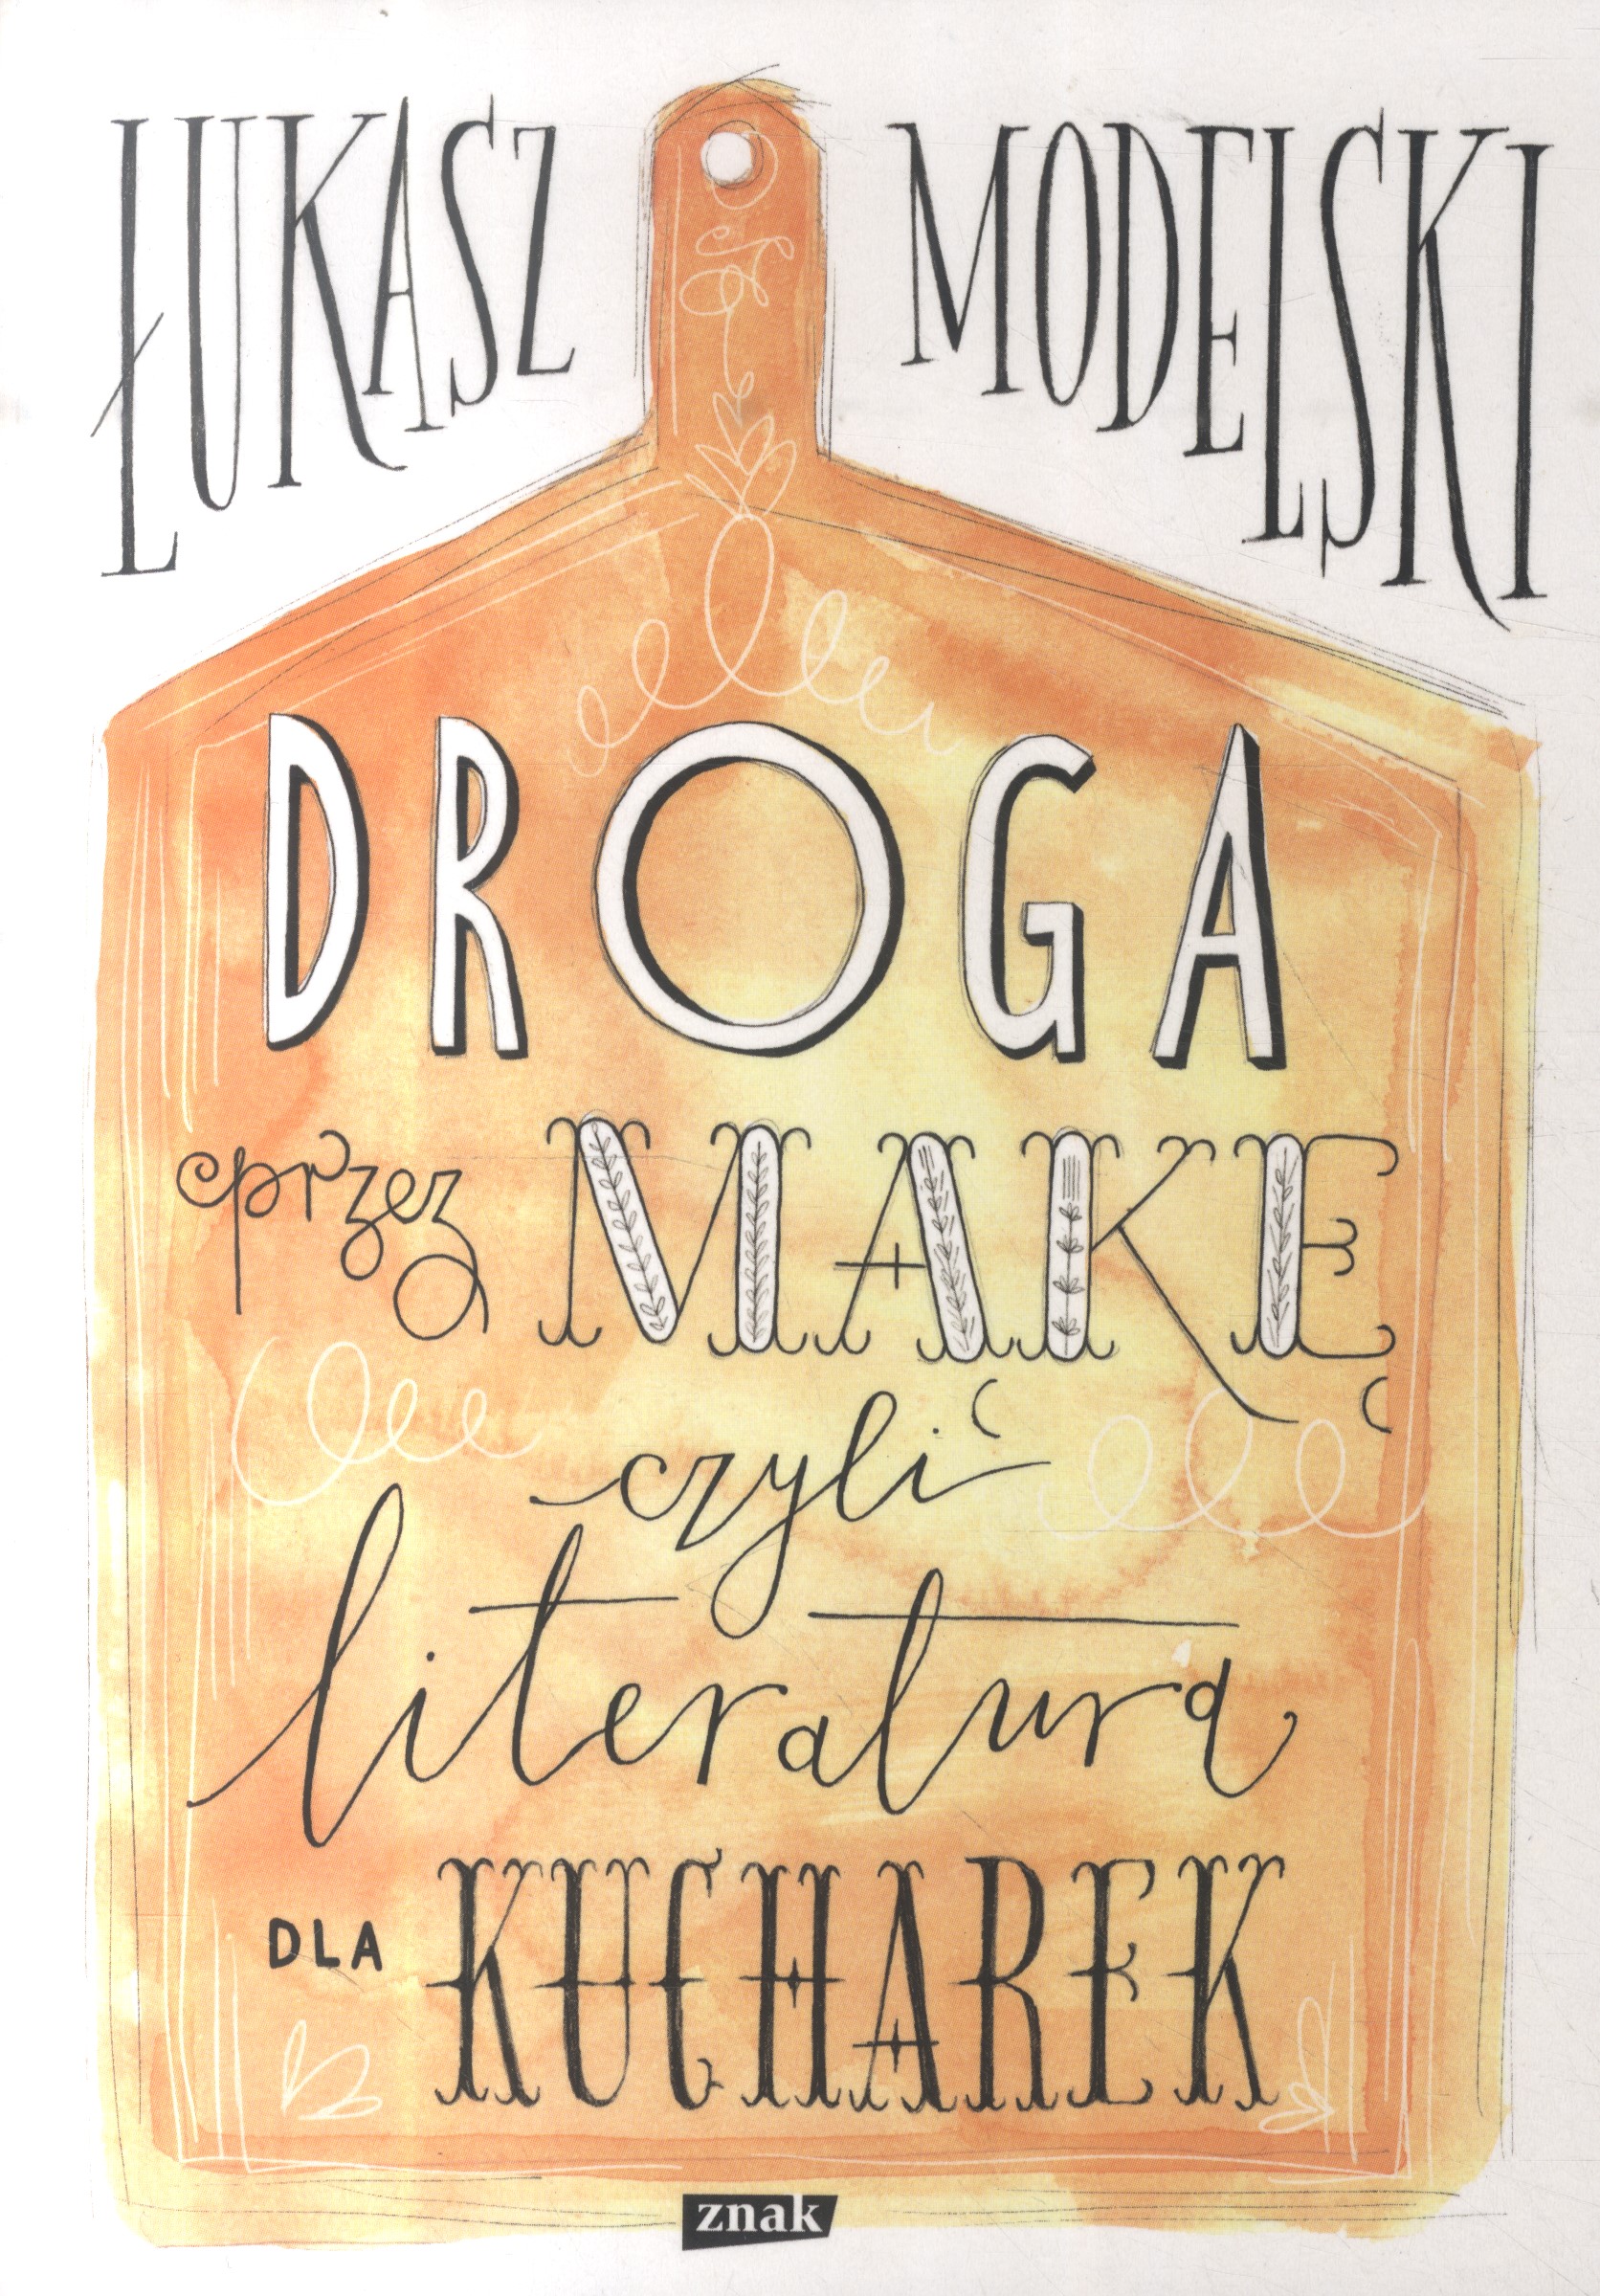 ŁUKASZ MODELSKI
DROGA
przez MĄKĘ
czyli
literatura
DLA KUCHAREK
znak